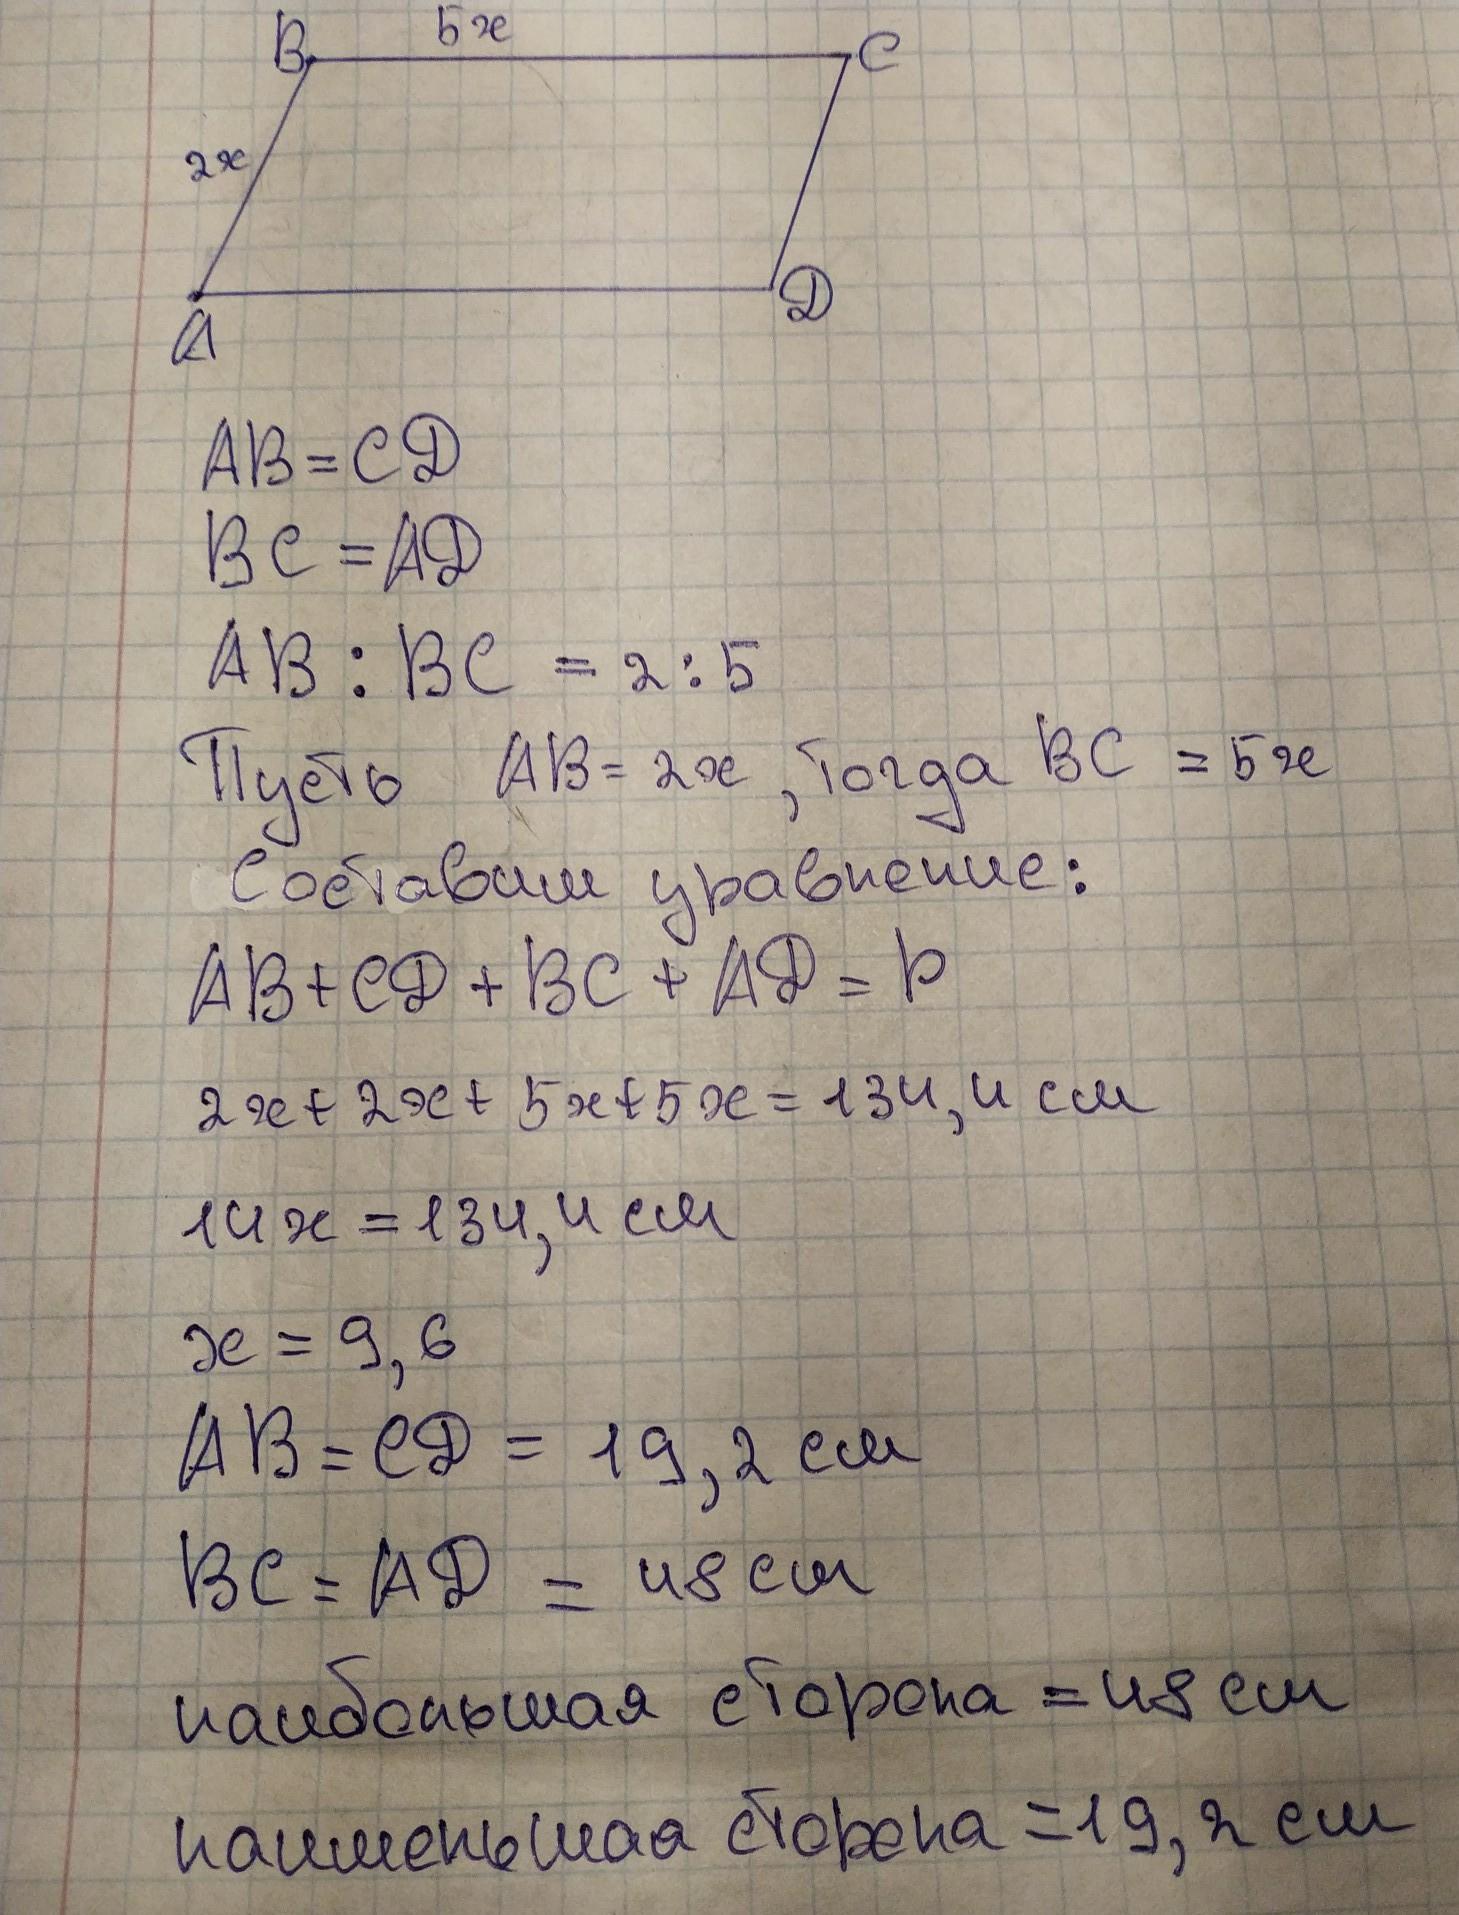 B 5x C
2x
A D
AB=CD
BC=AD
AB:BC = 2:5
Пусть AB=2x, тогда BC = 5x
Составим уравнение:
AB+CD+BC+AD=P
2x+2x+5x+5x=134,4 см
14x=134,4 см
x=9,6
AB=CD= 19,2 см
BC=AD = 48 см
наибольшая сторона =48 см
наименьшая сторона =19,2 см